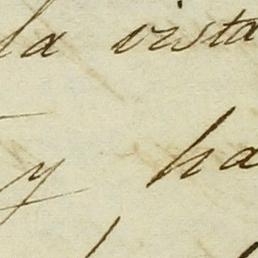 la vista
y ha